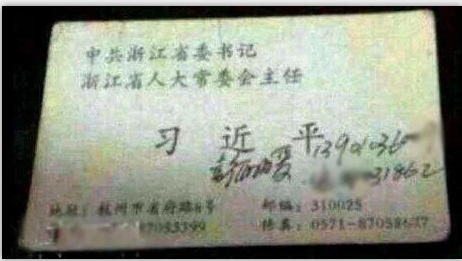 中共浙江省委书记
浙江省人大常委会主任
习 近 平
1390136
31862
地址：杭州市省府路8号 邮编：310025
87053399 传真：0571-87058677